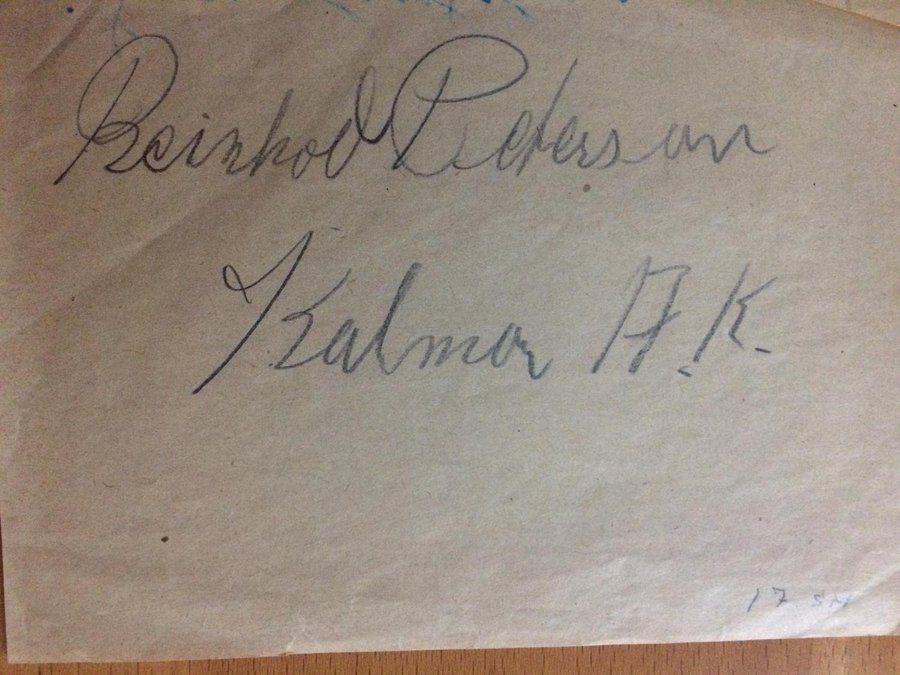 Reinhod Peterson
Kalmar A.K.
17 SM